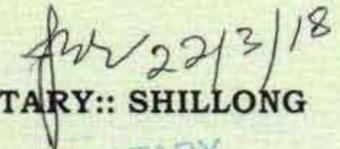 22/3/18
TARY:: SHILLONG
TARY